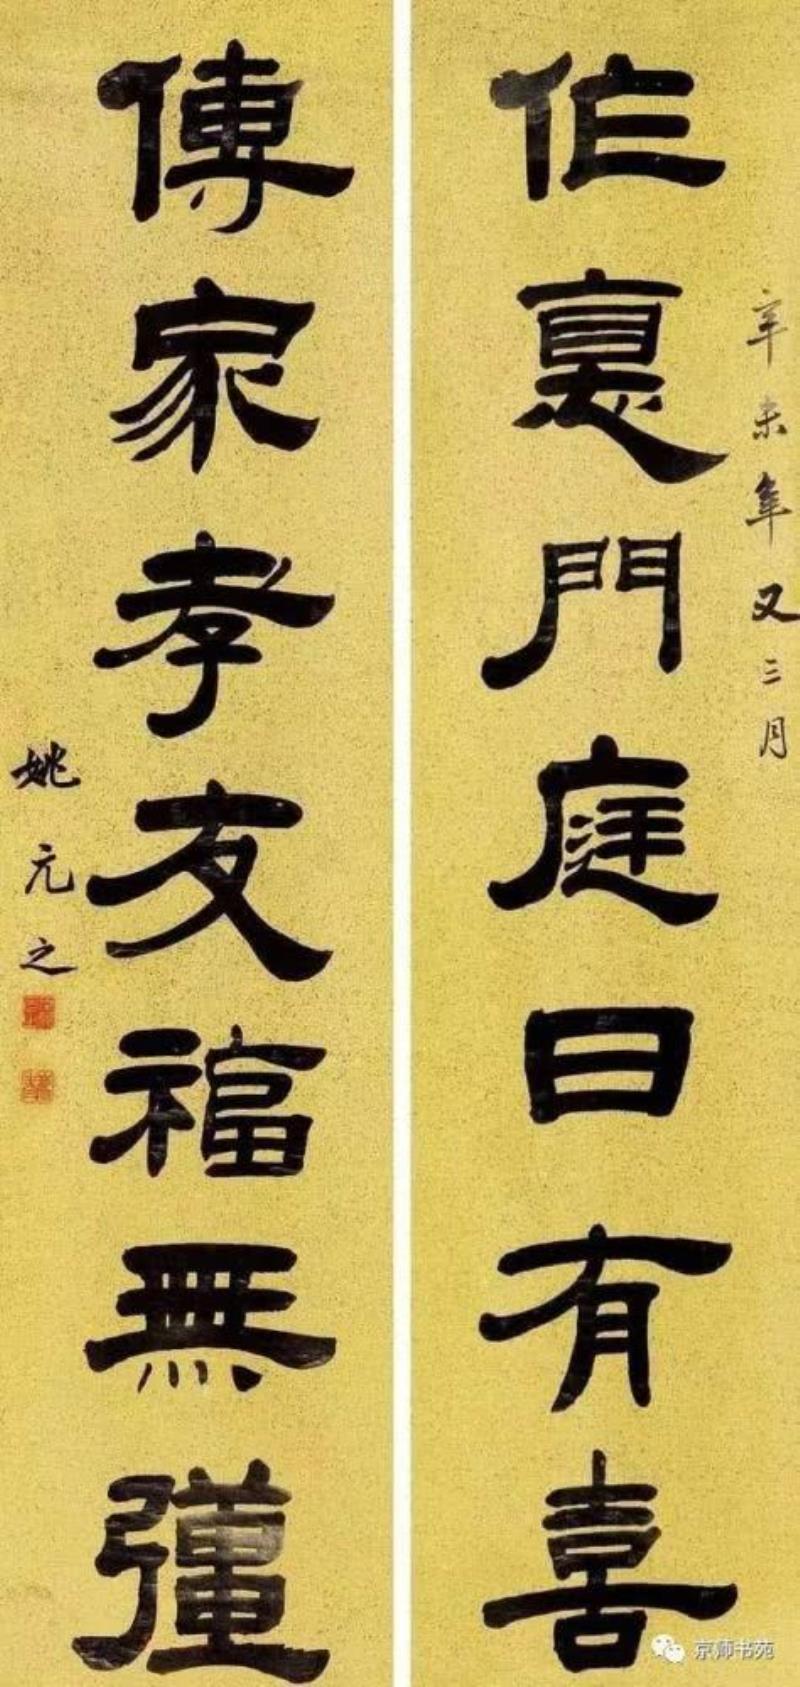 作惪門庭日有喜
辛未年又三月
傳家孝友福無疆
姚元之
京师书苑